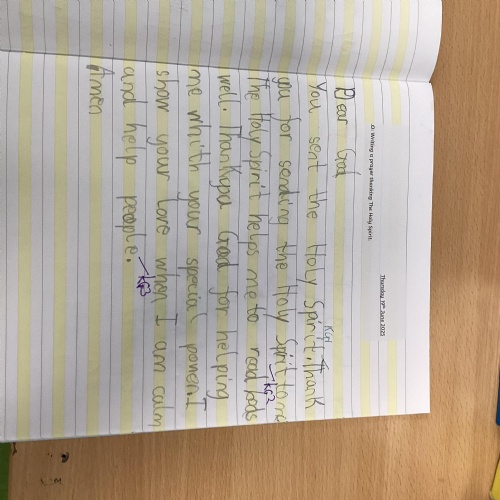 Thursday 19th June 2025
.O: Writing a prayer thanking The Holy Spirit.
Dear God
You sent the Holy Spirit. Thank
KG1
you for sending the Holy Spirit to me
KG2
the Holy Spirit helps me to read
well. Thankyou God for helping
me whith your special power. I
show your love when I am calm
and help people.
KG3
Amen